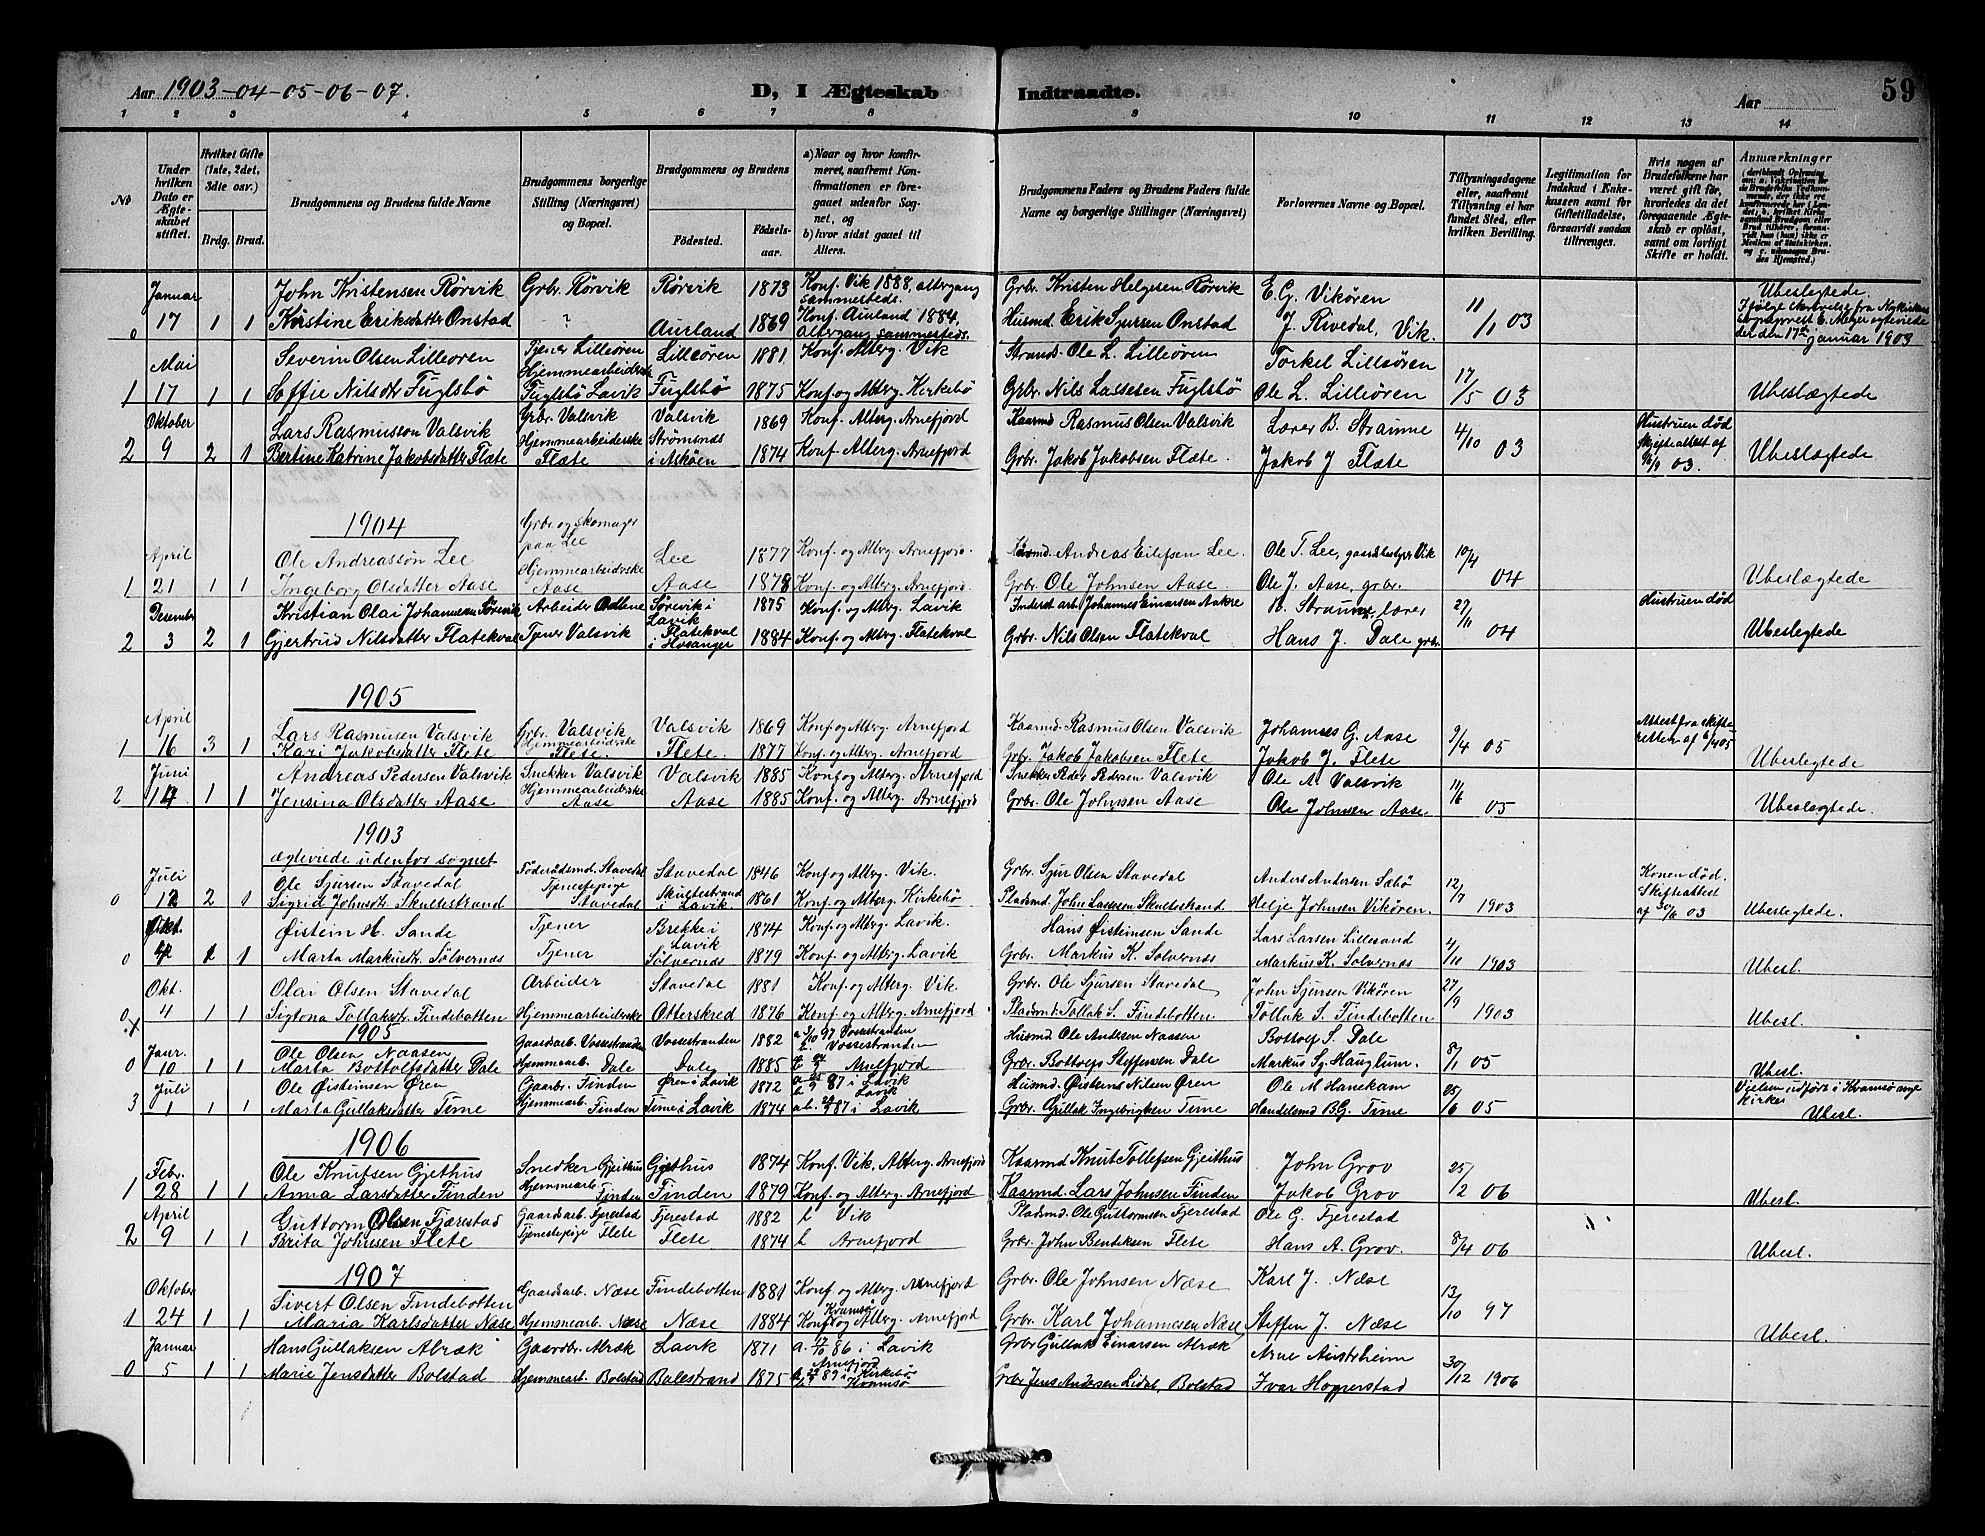 Aar 1903-04-05-06-07.
D, I Ægteskab Indtraadte.
59
Aar
1 2 3 4 5 6 7 8 9 10 11 12 13 14
No
Under hvilken Dato er Ægteskabet stiftet.
Hvilket Gifte (1ste, 2det, 3die osv.)
Brdg. Brud.
Brudgommens og Brudens fulde Navne
Brudgommens borgerlige Stilling (Næringsvei) og Bopæl.
Brudgommens og Brudens
Fødested. Fødselsaar.
a) Naar og hvor konfirmeret, saafremt Konfirmationen er foregaaet udenfor Sognet, og
b) hvor sidst gaaet til Alters.
Brudgommens Faders og Brudens Faders fulde Navne og borgerlige Stillinger (Næringsvei)
Forlovernes Navne og Bopæl.
Tillysningsdagene eller, saafremt Tillysning ei har fundet Sted, efter hvilken Bevilling.
Legitimation for Indskud i Enkekassen samt for Giftetilladelse, forsaavidt saadan tiltrænges.
Hvis nogen af Brudefolkene har været gift før, hvorledes da det foregaaende Ægteskab er opløst, samt om lovligt Skifte er holdt.
Anmærkninger
Januar John Kristensen Rörvik Grbr. Rörvik Rörvik 1873 Konf. Vik 1888, altergang sammesteds. Grbr. Kristen Helgesen Rörvik E. G. Vikören Ubeslegtede.
0 17 1 1 Kristine Eriksdatter Onstad ? Aurland 1869 Konf. Aurland 1884, altergang sammesteds. Husmd Erik Sjursen Onstad J. Rivedal, Vik. 11/1 03 Ifölge skrivelse fra Nykirkens sogneprest E. Meyer egteviede der den 17de januar 1903
Mai Severin Olsen Lilleören Tjener Lilleören Lilleören 1881 Konf. Alterg. Vik Strands. Ole L. Lilleören Torkel Lilleören
1 17 1 1 Soffie Nilsdtr Fuglsbö Hjemmearbeiderske Fuglsbö Lavik Fuglsbö 1875 Konf. og Alterg. Kirkebö Grbr. Nils Lassesen Fuglsbö Ole L. Lilleören 17/5 03 Ubeslægtede
Oktober Lars Rasmusson Valsvik Grbr. Valsvik Valsvik 1869 Konf. Alterg. Arnefjord Kaarmd Rasmus Olsen Valsvik Lærer B. Straume 4/10 03 Hustruen död
2 9 2 1 Bertine Katrine Jakobsdatter Flæte Hjemmearbeiderske Flete Strömsnæs i Asköen 1874 Konf. Alterg. Arnefjord Grbr. Jakob Jakobsen Flæte. Jakob J Flæte Skifteattest af 03. Ubeslægtede
1904
April Ole Andreassön Lee Grbr og skomager paa Lee Lee 1877 Konf. og Alterg. Arnefjord. Andreas Eilefsen Lee. Ole T. Lee, gaardbruger Vik 10/4 04
1 21 1 1 Ingeborg Olsdatter Aase Hjemmearbeiderske Aase Aase 1878 Konf. og Alterg. Arnefjord. Grbr Ole Johnsen Aase. Ole J. Aase, grbr. Ubeslægtede
Desember Kristian Olai Johannesen Sörevik Arbeider Odlene Sörevik i Lavik 1875 Konf. og Alterg. Lavik Inderst arb. Johannes Einarsen Aakre B. Straume lærer 27/11 04 Hustruen död
2 3 2 1 Gjertrud Nilsdatter Flatekval Tjener Valsvik Flatekval i Hosanger 1884 Konf. og Alterg. Flatekval Grbr. Nils Olsen Flatekval Hans J. Dale grbr. Ubeslegtede
1905
April Lars Rasmusen Valsvik Grbr. Valsvik Valsvik 1869 Konf og Alterg. Arnefjord Kaarmd. Rasmus Olsen Valsvik Johannes G. Aase 9/4 05 Attest fra skifteretten af 6/4 05
1 16 3 1 Kari Jakobsdatter Flete Hjemmearbeiderske Flete. Flete. 1877 Konf. og Alterg. Arnefjord Grbr. Jakob Jakobsen Flete Jakob J. Flete Ubeslegtede
Juni Andreas Pedersen Valsvik Snekker Valsvik Valsvik 1885 Konf og Alterg. Arnefjord Snekker Peder Pedersen Valsvik Ole A. Valsvik 11/6 05
2 14 1 1 Jensina Olsdatter Aase Hjemmearbeiderske Aase Aase 1885 Konf. og Alterg. Arnefjord Grbr. Ole Johnsen Aase Ole Johnsen Aase. Ubeslægtede
1903
egteviede udenfor sognet
Juli Ole Sjursen Stavedal Föderådsmd. Stavedal Stavedal 1846 Konf og Alterg. Vik. Grbr. Sjur Olsen Stavedal Anders Andersen Sæbö 12/7 1903 Konen död.
0 12 2 1 Sigrid Johnsdtr. Skultestrand Tjenestepige Stavedal Skultestrand i Lavik. 1861 Konf. og Alterg. Kirkebö Pladsmd. John Lassesen Skultestrand Helje Johnsen Vikören. Skifteattest af 30/6 03 Ubeslegtede.
Okt. Öistein H. Sande Tjener Brekke i Lavik 1874 Konf. og Alterg. Lavik. Hans Öisteinsen Sande Lars Larsen Lillesand 4/10 1903
0 4 1 1 Marta Markusdtr. Sölvernæs Tjener Sölvernæs 1879 Konf. og Alterg. Lavik Grbr. Markus K. Solvernæs Markus K. Solvernæs Ubesl.
Okt. Olai Olsen Stavedal Arbeider Stavedal 1881 Konf og Alterg. Vik Grbr. Ole Sjursen Stavedal John Sjursen Vikören 27/9 1903
0 4 1 1 Sigtona Tollaksdtr. Findebotten Hjemmearbeiderske Otterskred 1876 Konf og Alterg. Arnefjord Pladsmd. Tollak S. Findebotten Tollak S. Findebotten Ubesl.
1905
Janr. Ole Olsen Naasen Gaardsarb. Vossestranden Vossestranden 1882 a 3/10 97 Vossestranden Vossestranden Husmd. Ole Andersen Naasen Bottolf S. Dale 8/1 05
0 10 1 1 Marta Bottolfsdatter Dale Hjemmearb. Dale Dale 1885 Arnefjord Grbr. Bottolf Steffensen Dale Markus Sj. Hauglum. Ubesl.
Juli Ole Öisteinsen Ören Gaarbr. Finden Ören i Lavik 1872 87 i Lavik b Lavik Husmd. Öistens Nilsen Ören Ole M Hanekam 25/6 05 Vielsen udfört i Kvamsö nye kirke
3 1 1 1 Marta Gullaksdatter Teme Hjemmearb. Finden Teme i Lavik 1874 ab. 87 i Lavik Grbr. Gullak Ingebrigtsen Teme Handelsmd B. G. Time Ubesl.
1906
Febr. Ole Knutsen Gjethus Snedker Gjeithus Gjethus 1874 Konf. Vik, Alterg. Arnefjord Kaarmd Knut Tollefsen Gjeithus John Grov 25/2 06
1 28 1 1 Anna Larsdatter Finden Hjemmearb. Finden Finden 1879 Konf. og Alterg. Arnefjord Kaarmd. Lars Johnsen Finden Jakob Grov Ubesl.
April Guttorm Olsen Fjærestad Gaardsarb. Fjerestad Fjerestad 1882 b Vik Pladsmd. Ole Guttormsen Fjerestad Ole G. Fjerestad 8/4 06
2 9 1 1 Brita Johnsen Flete Tjenestepige Flete Flete 1874 b Arnefjord Grbr. John Bendiksen Flete Hans A. Grov. Ubesl.
1907
Oktober Sivert Olsen Findebotten Gaardsarb. Næse Findebotten 1881 Konf. og Alterg. Arnefjord Grbr. Ole Johnsen Næse Karl J. Næse 13/10 97
1 24 1 1 Maria Karlsdatter Næse Hjemmearb. Næse Næse 1884 Konf og Kvamsö Alterg. Arnefjord Grbr. Karl Johannesen Næse Steffen J. Næse Ubesl.
Januar Hans Gullaksen Alræk Gaardbr. Alræk Lavik 1871 a. 86 i Lavik Arnefjord Grbr Gullak Einarsen Alræk Arne Austrheim 30/12 1906
0 5 1 1 Marie Jensdatter Bolstad Hjemmearb. Bolstad Balestrand 1875 89 i Kirkebö Kvamsö Grbr Jens Andersen Lidal, Bolstad Ivar Hopperstad